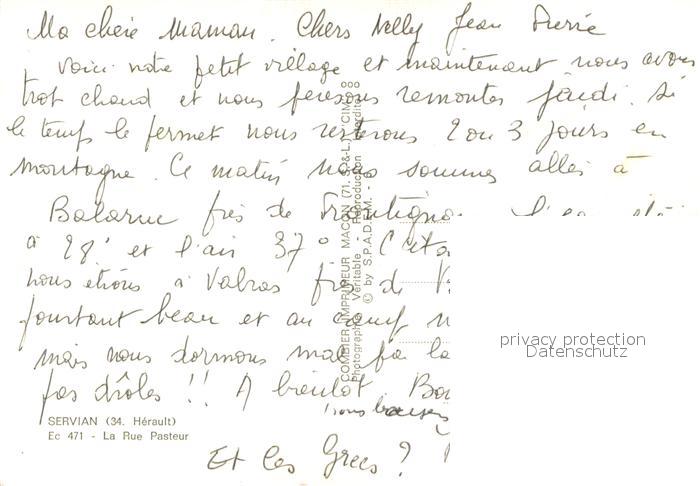 Ma chère Maman. Chers Nelly Jean Pierre
Voici notre petit village et maintenant nous avons
trop chaud et nous pensons remonter jeudi. Si
le temps le permet nous resterons 2 ou 3 jours en
montagne. Ce matin nous sommes allés à
Balaruc près de
à 28° et l'air 37°
nous étions à Valras près de
pourtant beau et au camp
mais nous dormons mal
pas drôles !! A bientôt
nous baisers
Et les Grecs ?
SERVIAN (34. Hérault)
Ec 471 - La Rue Pasteur
COMBIER IMPRIMEUR MACON (71. S.&-L.) "CIM"
Photographie Véritable - Reproduction Interdite
© by S.P.A.D.E.M. - 8
privacy protection
Datenschutz